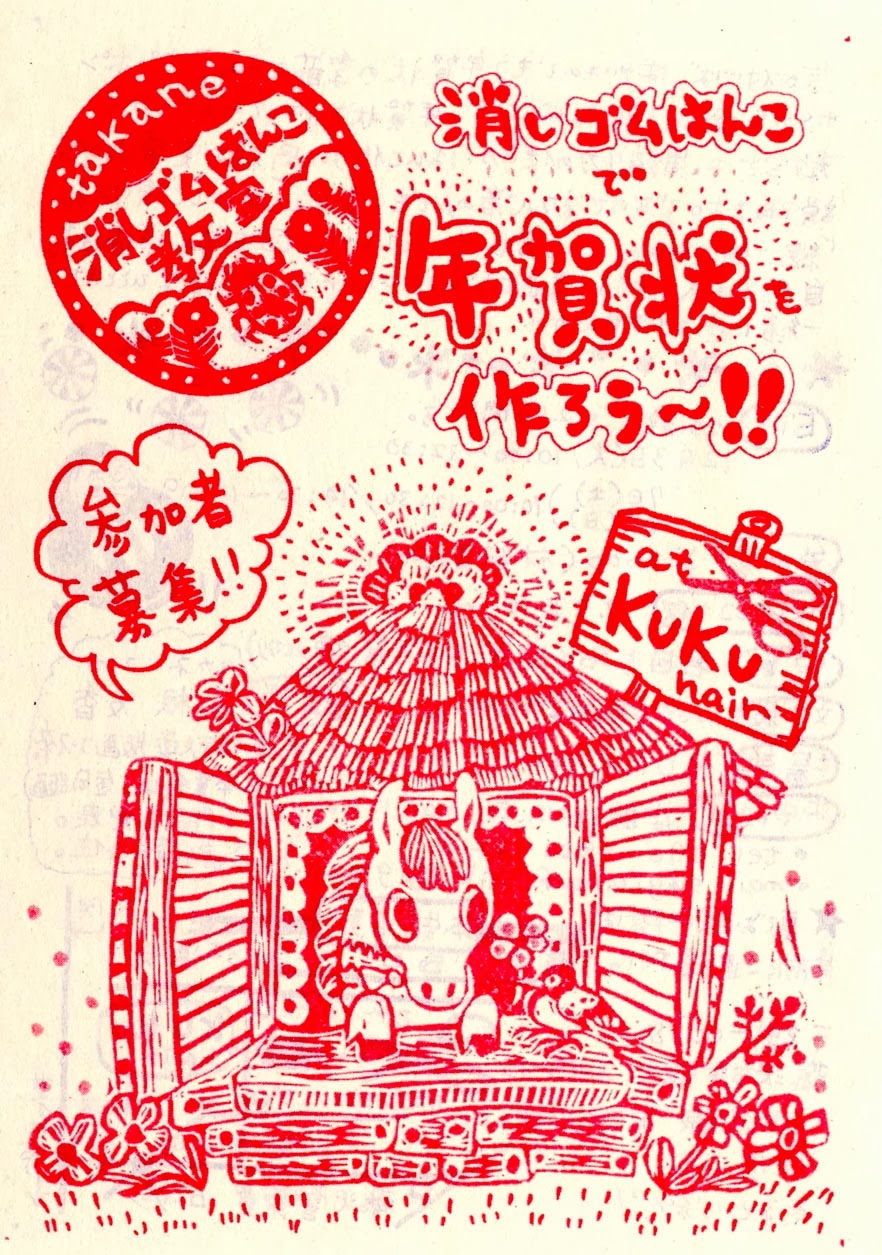 takane
消しゴムはんこ
教室
消しゴムはんこ
で
年賀状を
作ろう〜!!
参加者
募集!!
at
KuKu
hair